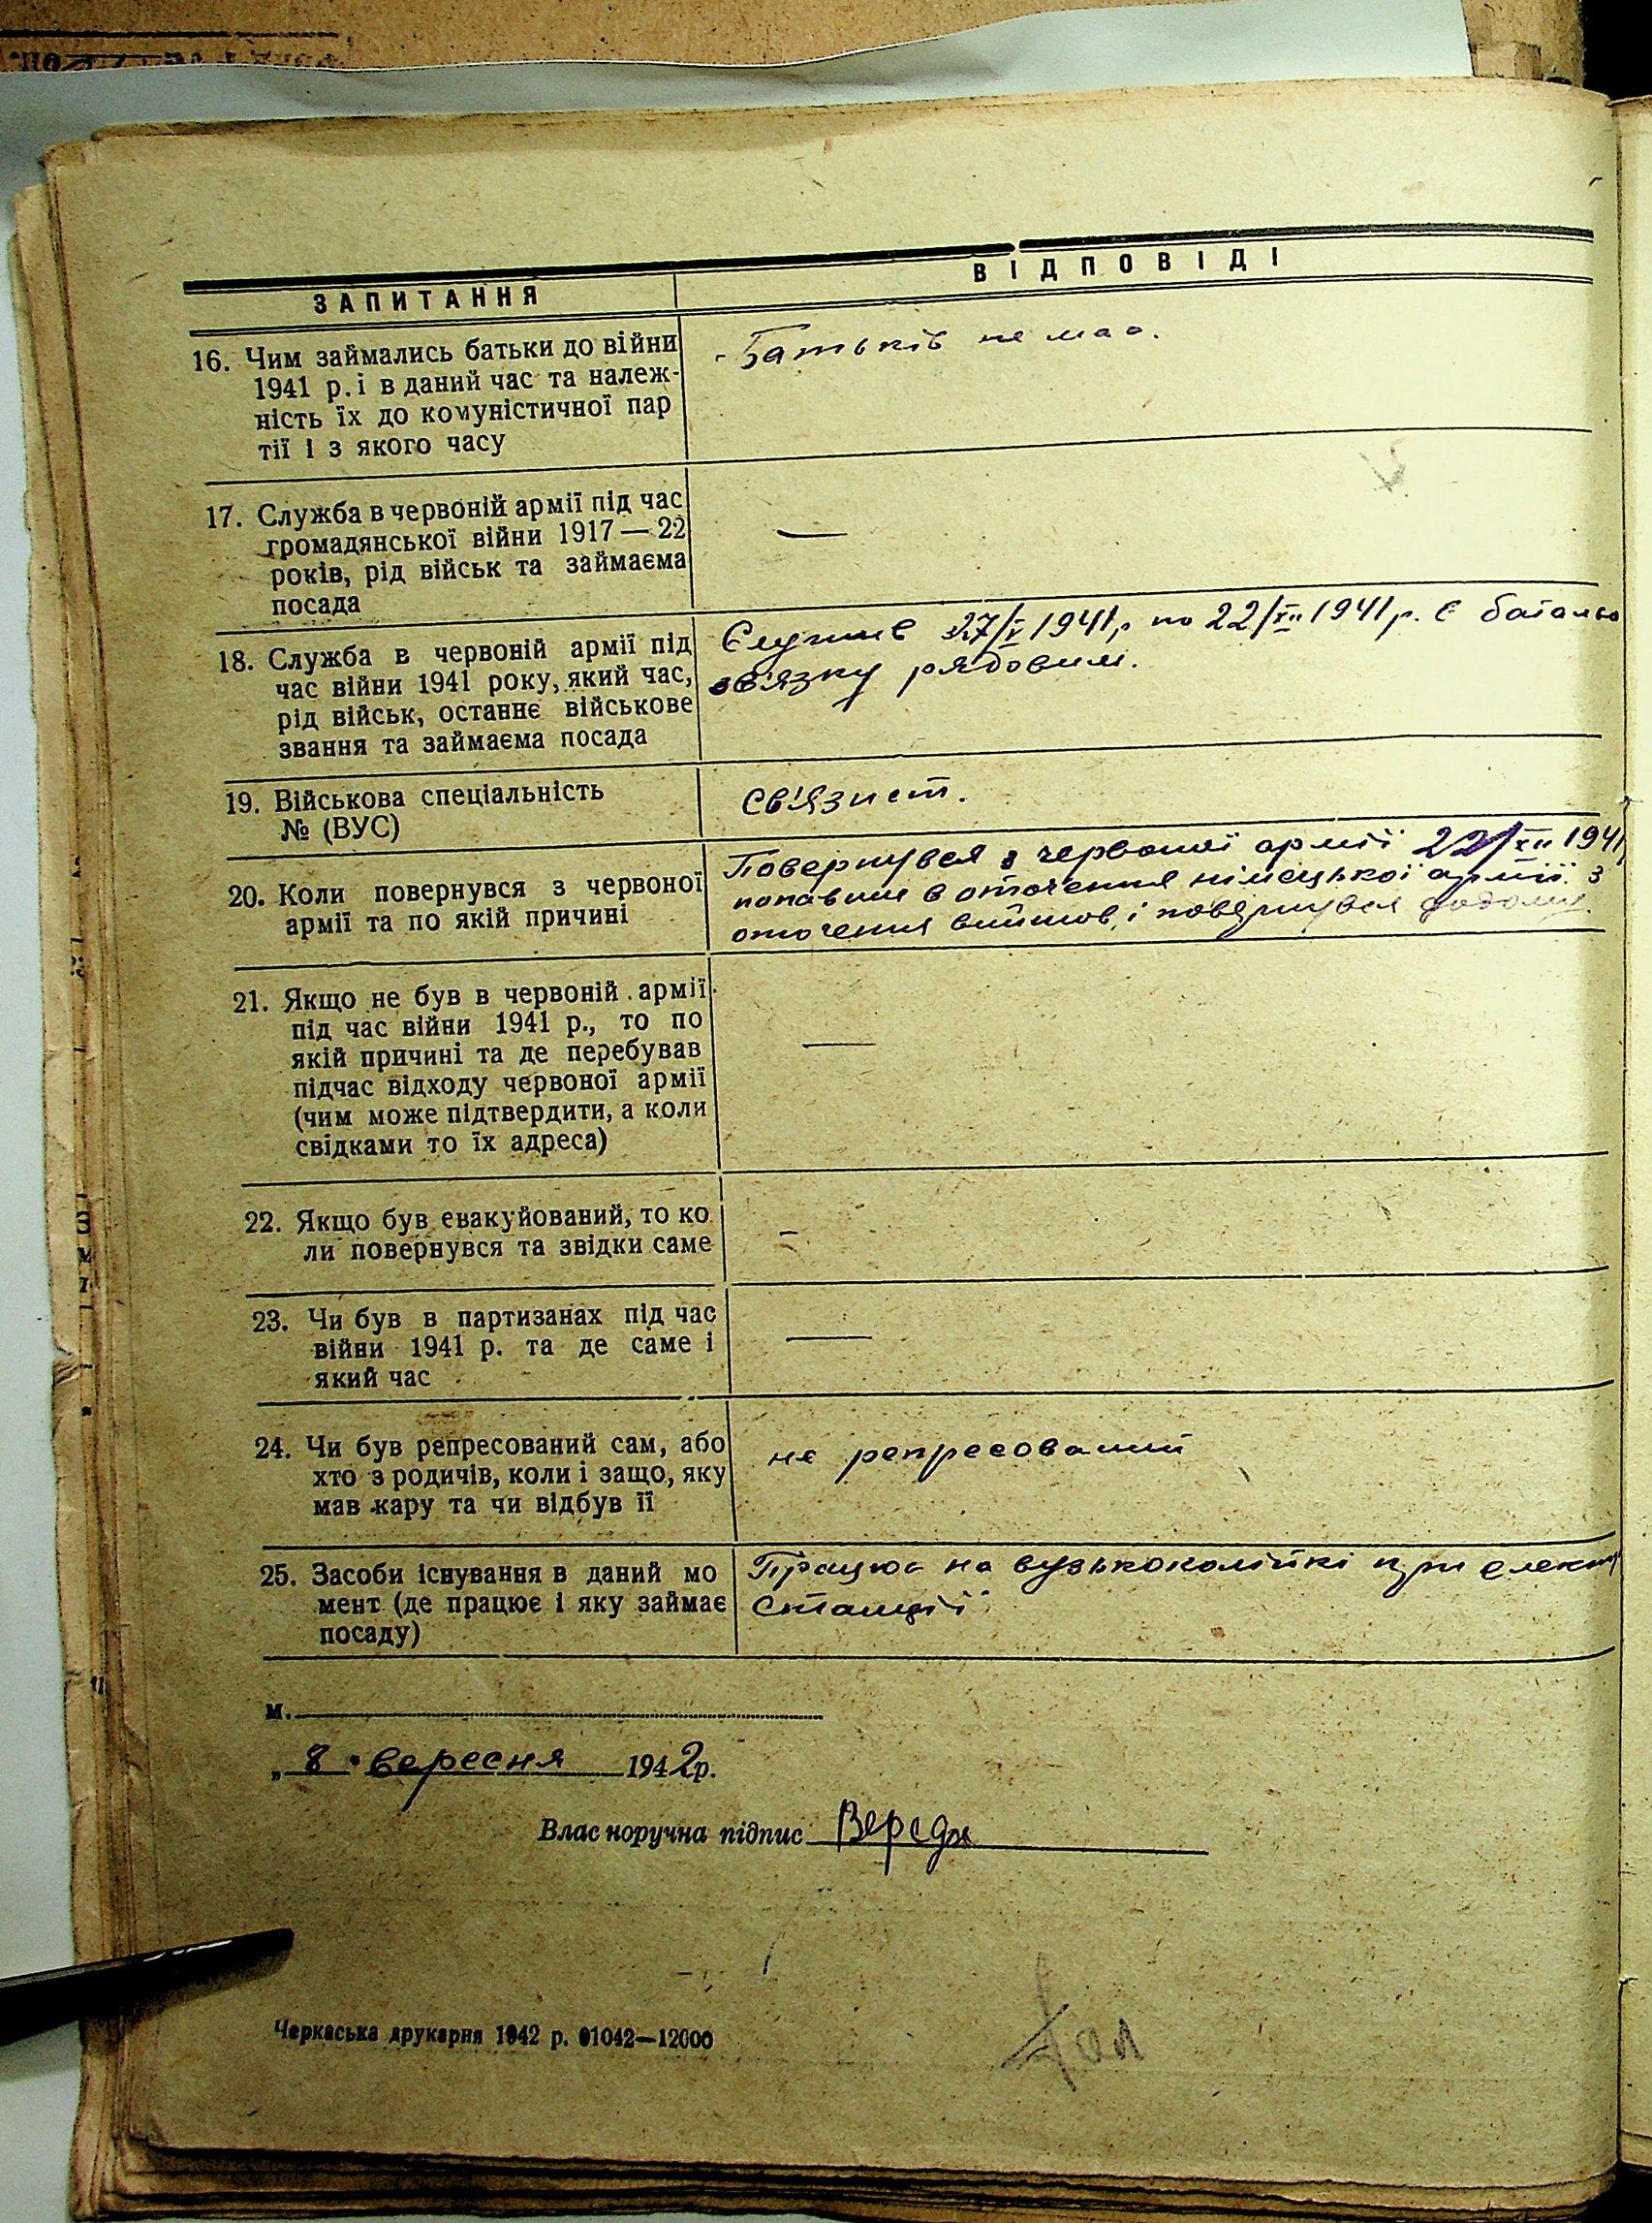 ЗАПИТАННЯ
ВІДПОВІДІ
16. Чим займались батьки до війни
1941 р. і в даний час та належ-
ність їх до комуністичної пар
тії і з якого часу
Батьків не маю.
17. Служба в червоній армії під час
громадянської війни 1917 — 22
років, рід військ та займаєма
посада
—
18. Служба в червоній армії під
час війни 1941 року, який час,
рід військ, останнє військове
звання та займаєма посада
Служив 27/V 1941 р. по 22/XII 1941 р. в батальо
зв'язку рядовим.
19. Військова спеціальність
№ (ВУС)
Св'язист.
20. Коли повернувся з червоної
армії та по якій причині
Повернувся з червоної армії 22/XII 1941
попавши в оточення німецької армії. З
оточення вийшов, і повернувся додому.
21. Якщо не був в червоній армії
під час війни 1941 р., то по
якій причині та де перебував
підчас відходу червоної армії
(чим може підтвердити, а коли
свідками то їх адреса)
—
22. Якщо був евакуйований, то ко
ли повернувся та звідки саме
–
23. Чи був в партизанах під час
війни 1941 р. та де саме і
який час
—
24. Чи був репресований сам, або
хто з родичів, коли і защо, яку
мав кару та чи відбув її
не репресований
25. Засоби існування в даний мо
мент (де працює і яку займає
посаду)
Працюю на вузькоколійкі при електр
станції
м.
„ 8 " вересня 1942 р.
Власноручна підпис Вереда
Черкаська друкарня 1942 р. 01042—12000